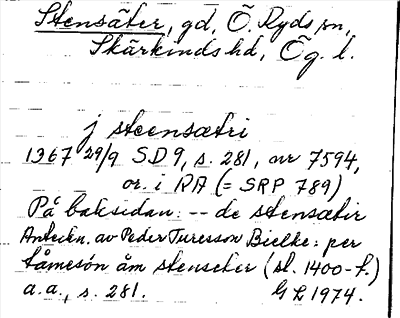 Stensäter, gd, Ö. Ryds sn,
Skärkinds hd, Ög. l.
j steensætri
1367 29/9 SD 9, s. 281, nr 7594,
or. i RA (= SRP 789)
På baksidan: -- de stensætir
Anteckn. av Peder Turesson Bielke: per
såmesón åm stenseter (sl. 1400-t.)
a.a., s. 281. G L 1974.